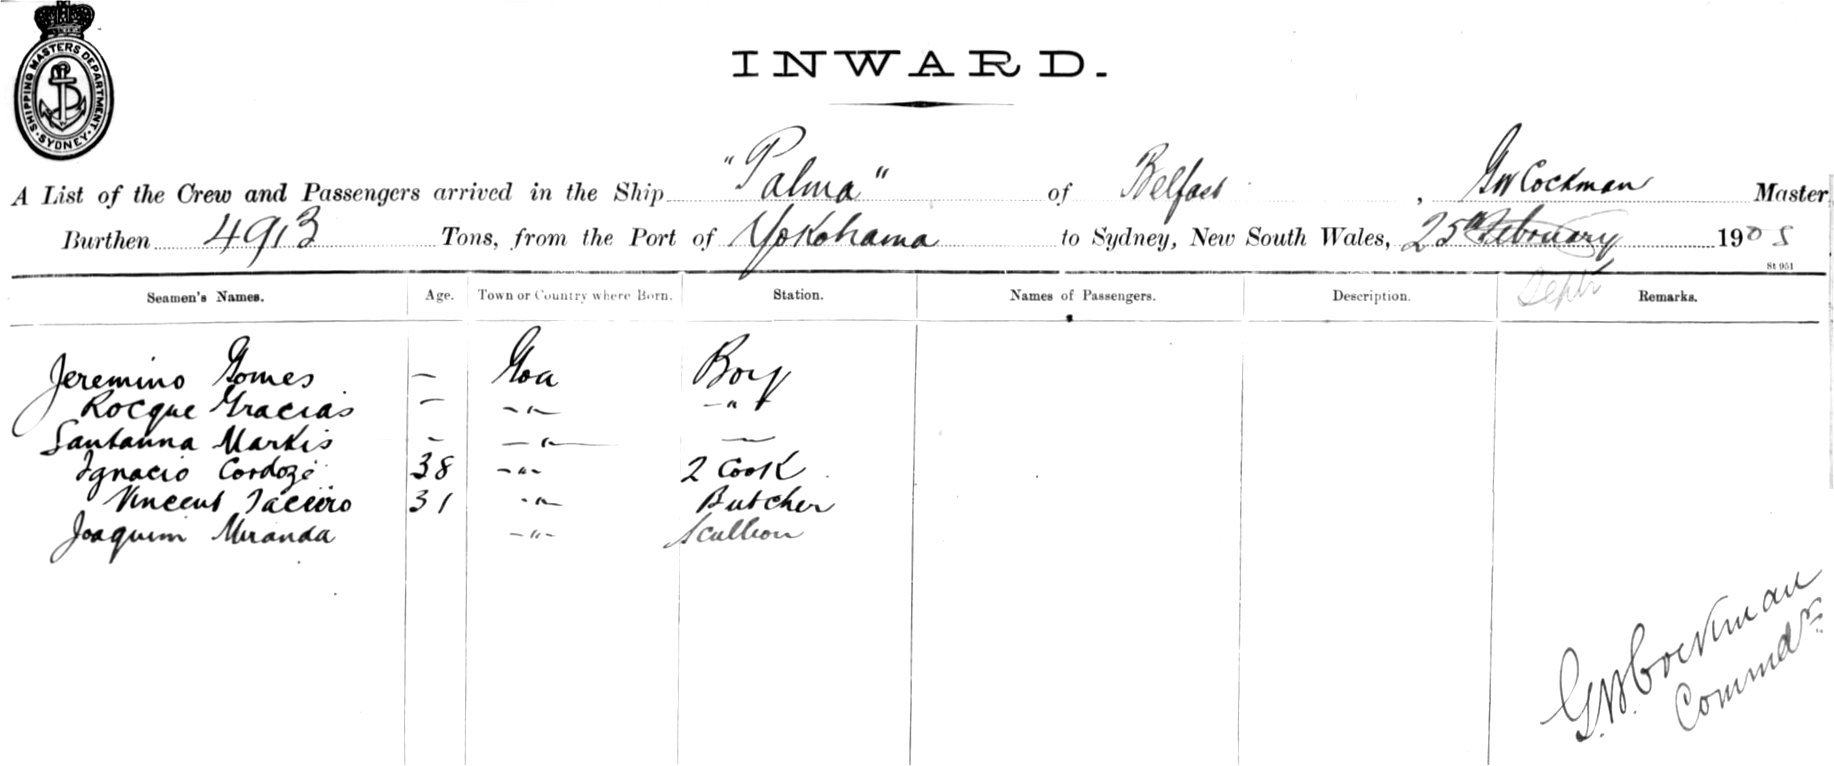 SHIPPING MASTERS DEPARTMENT · SYDNEY ·
INWARD.
A List of the Crew and Passengers arrived in the Ship "Palma" of Belfast, GW Cockman Master
Burthen 4913 Tons, from the Port of Yokohama to Sydney, New South Wales, 25th February 1905
St 951
Septr
Seamen's Names. Age. Town or Country where Born. Station. Names of Passengers. Description. Remarks.
Jeremino Gomes — Goa Boy
Rocque Gracias — -"- -"-
Santanna Markis - -"- —
Ignacio Cordoze 38 -"- 2 Cook
Vincent 31 -"- Butcher
Joaquim Miranda -"- Scullion
G.W. Cockman
Commdr